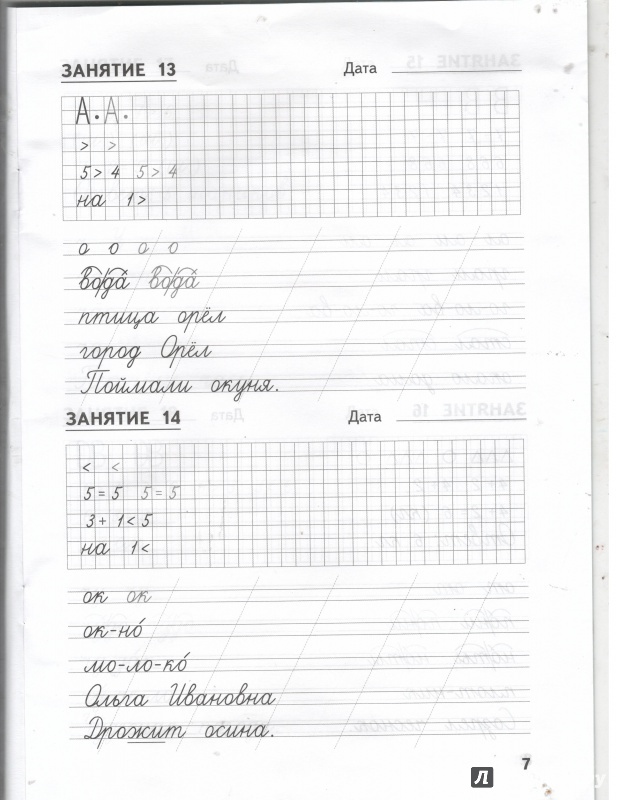 ЗАНЯТИЕ 13 Дата
А. А.
> >
5 > 4 5 > 4
на 1 >
о о о о
вода вода
птица орёл
город Орёл
Поймали окуня.
ЗАНЯТИЕ 14 Дата
< <
5 = 5 5 = 5
3 + 1 < 5
на 1 <
ок ок
ок-но́
мо-ло-ко́
Ольга Ивановна
Дрожит осина.
7
Л